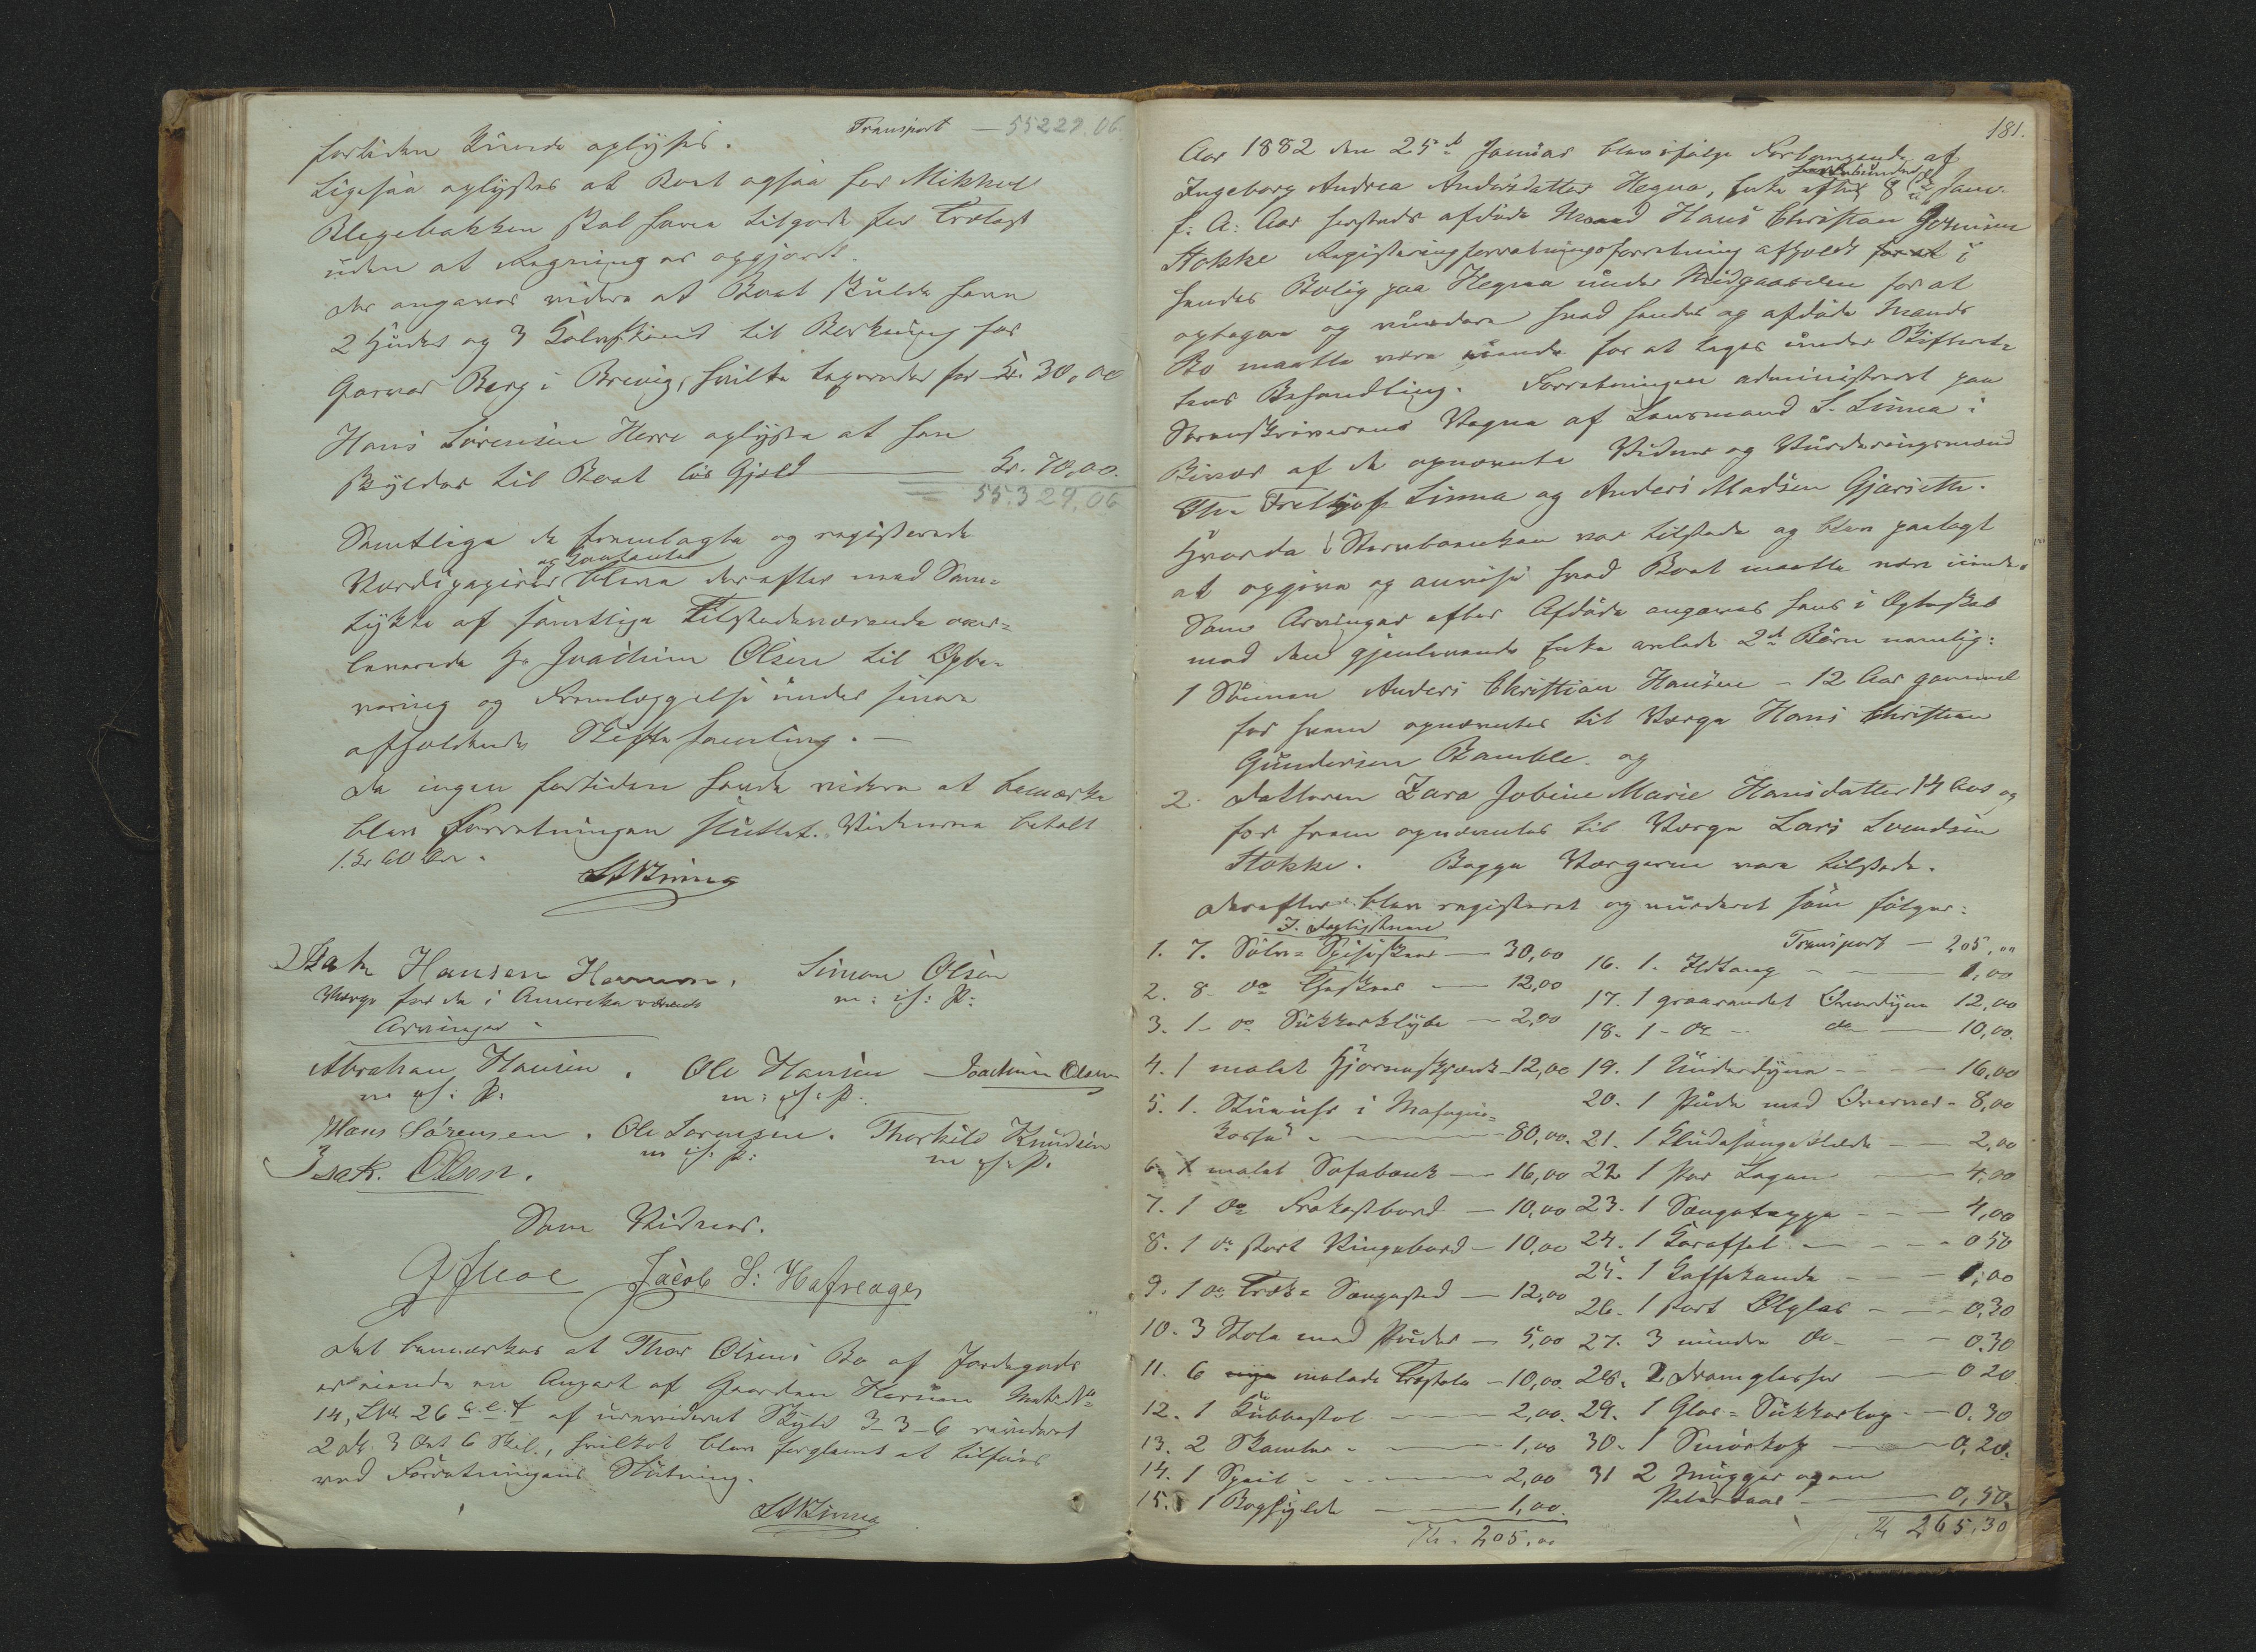 Transport — 55229.06.
fortiden kunde oplyses.
Ligesaa oplystes at Boet ogsaa hos Mikkel
Blegebakken skal have tilgode for Trælast
uden at Regning er opgjordt.
Der angaves videre at Boet skulde have
2 Huder og 3 Kalvskind til Berkning hos
Garver Berg i Brevig, hvilke taxeredes for Kr. 30,00
Hans Sørensen Herre oplyste at han
skylder til Boet løs Gjæld — Kr. 70,00.
55.329,06
Samtlige de fremlagte og registrerede
og Contanter
Værdipapirer bleve derefter med Sam=
tykke af samtlige Tilstedeværende over=
leverede Hr Joachim Olsen til Opbe=
varing og Fremlæggelse under senere
afholdende Skiftesamling. —
Da ingen fortiden havde videre at bemærke
blev Forretningen sluttet. Vidnerne betalt
1. Kr 60 Øre.
Isak Hansen
Simon Olsen
Værge for de i Amerika værende
m: if: P:
Arvinger
Abraham Hansen. Ole Hansen Joachim Olsen
m if: P. m: if: P.
Hans Sörensen. Ole Sørensen. Thorkild Knudsen
m if: P: m if: P.
Isak. Olson.
Som Vidner.
Jacob S:
Det bemærkes at Thor Olsens Bo af Jordegods
er eiende en Anpart af Gaarden Matr No
14, LNo 26 c. e. f af urevideret Skyld 3-3-6 revideret
2 Dl. 3 Ort 6 Skil., hvilket blev forglemt at tilføres
ved Forretningens Slutning.
181.
Aar 1882 den 25de Januar blev ifølge Forlangende af
Ingeborg Andrea Andersdatter Hegna, Enke efter 8de Janr.
f: A: Aar hersteds afdøde Mand Hans Christian Jørensen
Stokke Registreringsforretning afholdt i
hendes Bolig paa Hegna under Midgaarden for at
optegne og vurdere hvad hendes og afdøde Mands
Bo maatte være eiende for at tages under Skifteret=
tens Behandling. Forretningen administreret paa
Sorenskriverens Vegne af Lensmand S. Linna i
Bivær af de opnævnte Vidner og Vurderingsmænd
Frithjof Linna og Anders Madsen Gjerseth.
Hvorda Stervboenken var tilstede og blev paalagt
at opgive og anvise hvad Boet maatte være eiende.
Som Arvinger efter Afdøde angaves hans i Ægteskab
med den gjenlevende Enke avlede 2de Børn nemlig:
1 Sønnen Anders Christian Hansen — 12 Aar gammel
for hvem opnævntes til Værge Hans Christian
Gundersen Bamble. og
2. Datteren Zara Jobine Marie Hansdatter 14 Aar og
for hvem opnævntes til Værge Lars Svendsen
Stokke. Begge Værgerne vare tilstede.
Derefter blev registreret og vurderet som følger:
I. Dagligstuen
1. 7. Sølv= Spiseskeer — 30,00
2. 8 do Theskeer — 12,00
3. 1 do Sukkerklype — 2,00
4. 1 malet Hjørneskjænk — 12,00
5. 1. Stueuhr i Mahogni=
kasse — 80,00.
6. 1 malet Sofabænk — 16,00
7. 1 do Frokostbord — 10,00
8. 1 do stort Vingebord — 10,00
9. 1 do Træk= Sængested — 12,00
10. 3 Stole med Puder — 5,00
11. 6 malede Træstole — 10,00.
12. 1 Kubbestol — 2,00.
13. 2 Skamler — 1,00
14. 1 Speil — 2,00
15. 1 Boghylde — 1,00.
Kr. 205.00
Transport — 205,00
16. 1. Ildtang — 1,00
17. 1 graarandet Overdyne 12,00
18. 1 do do — 10,00.
19. 1 Underdyne — 16,00
20. 1 Pude med Overvar — 8,00
21. 1 Kludesængeklæde — 2,00
22 1 Par Lagen — 4,00
23. 1 Sængeteppe — 4,00
24. 1 Karaffel — 0 50
25. 1 Kaffekande — 1,00
26. 1 stort Ølglas — 0,30
27. 3 mindre do — 0.30
28. 2 Dramglasser — 0 20
29. 1 Glas= Sukkerkop — 0.30
30. 1 Smørkop — 0,20.
31 2 Mugger og en
— 0,50.
Kr 265,30